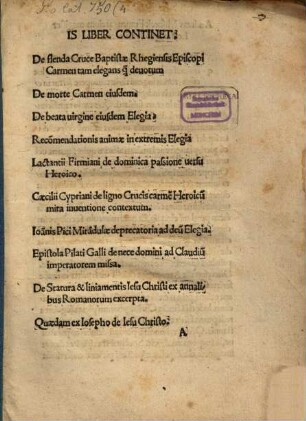 IS LIBER CONTINET:
De flenda Cruce Baptistæ Rhegiensis Episcopi
Carmen tam elegans q̃ deuotum
De morte Carmen eiusdem:
De beata uirgine eiusdem Elegia:
Recõmendationis animæ in extremis Elegia
Lactantii Firmiani de dominica passione uersu
Heroico.
Cæcilii Cypriani de ligno Crucis carmẽ Heroicũ
mira inuentione contextum.
Ioãnis Pici Mirãdulæ deprecatoria ad deũ Elegia.
Epistola Pilati Galli de nece domini ad Claudiũ
imperatorem missa.
De Statura & liniamentis Iesu Christi ex annali
bus Romanorum excerpta.
Quædam ex Iosepho de Iesu Christo:
A